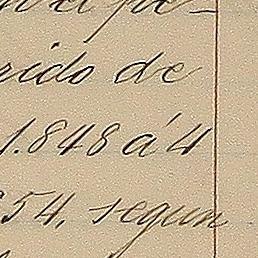 pe-
rido de
1.848 á 4
54, segun